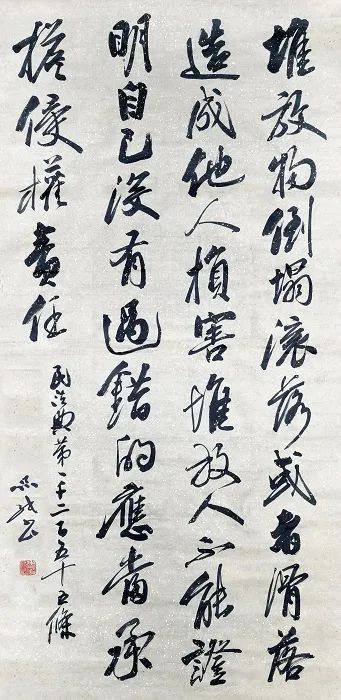 堆放物倒塌滾落或者滑落
造成他人損害堆放人不能證
明自己沒有過錯的應當承
擔侵權責任
民法典第一千二百五十五條